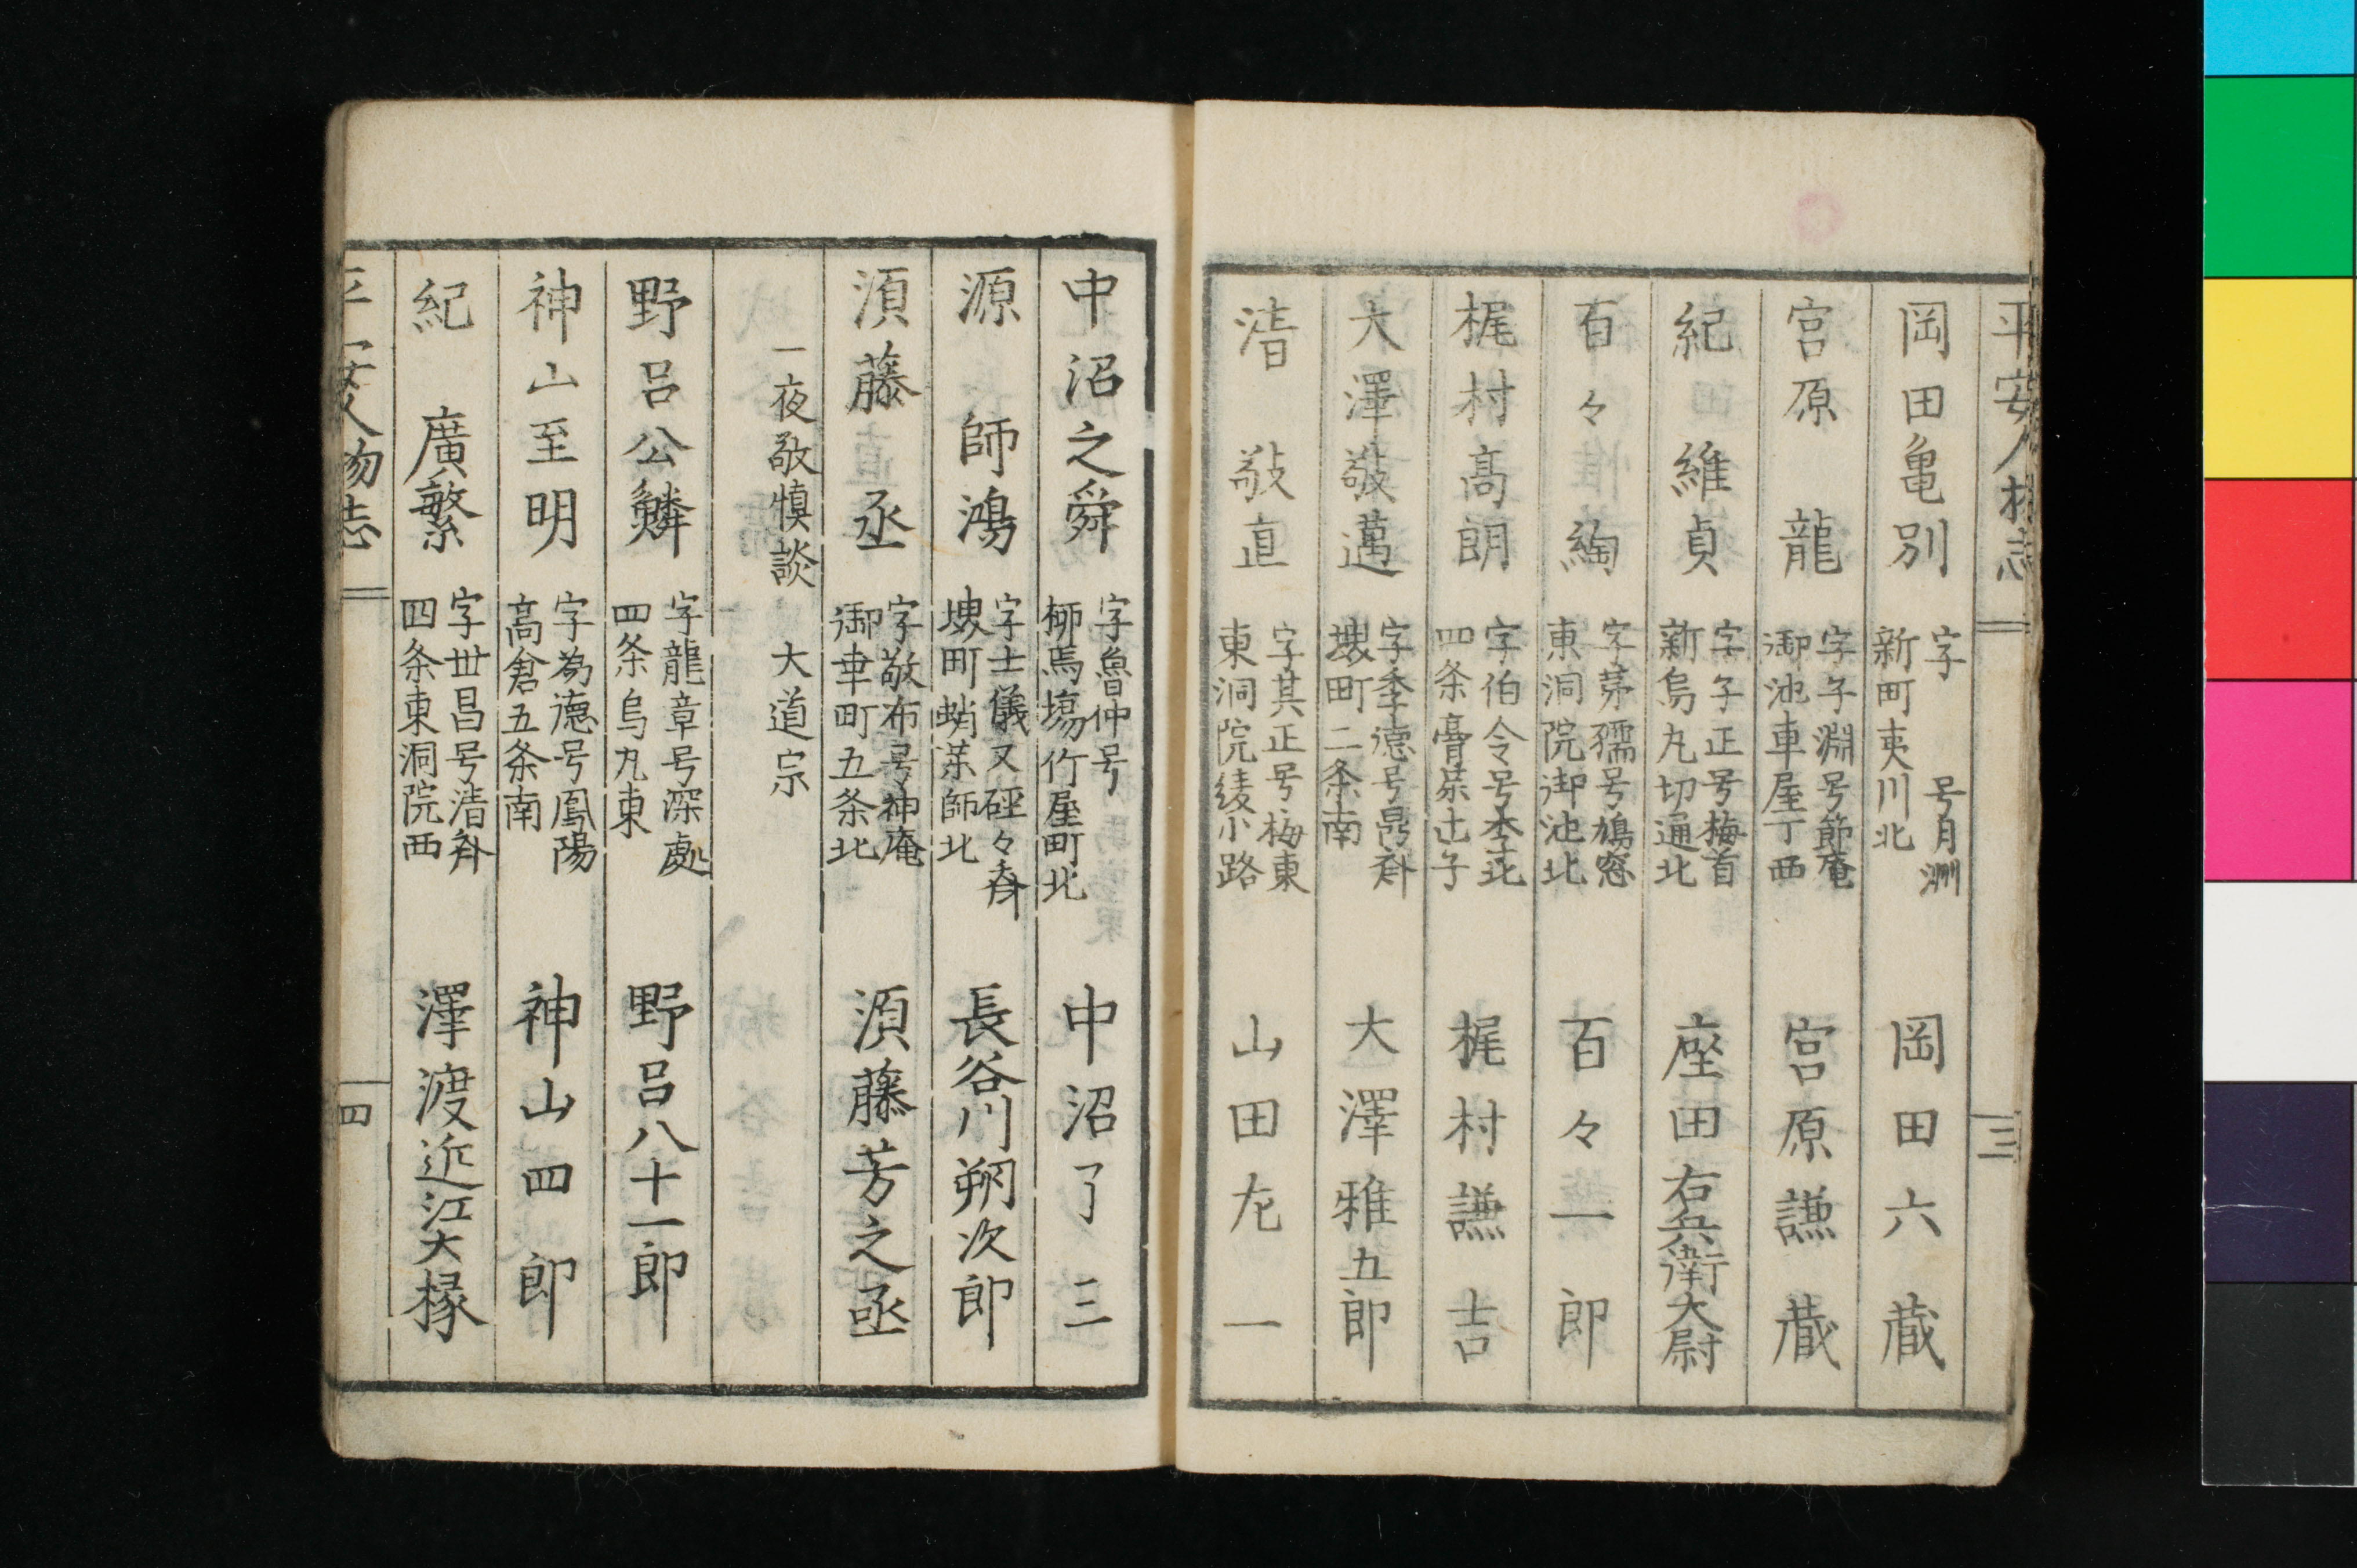 平安人物志 三
岡田亀別 字 号月洲 新町夷川北 岡田六蔵
宮原 龍 字子淵号節庵 御池車屋丁西 宮原謙蔵
紀 維貞 字子正号梅首 新烏丸切通北 座田右兵衛大尉
百々 綯 字茅孺号鳩窓 東洞院御池北 百々一郎
梶村高朗 字伯令号李北 四条膏薬辻子 梶村謙吉
大澤敬邁 字季徳号 斎 堺町二条南 大澤雅五郎
清 敬直 字其正号梅東 東洞院綾小路 山田九一
中沼之舜 字魯仲号 柳馬場竹屋町北 中沼了三
源 師鴻 字士儀又硜々斎 堺町蛸薬師北 長谷川朔次郎
須藤 丞 字敬布号神庵 御車町五条北 須藤芳之丞
一夜敬慎談 大道宗
野呂公鱗 字龍章号深處 四条烏丸東 野呂八十一郎
神山至明 字為徳号鳳陽 高倉五条南 神山四郎
紀 廣繁 字世昌号清斎 四条東洞院西 澤渡近江大掾
平安人物志 四